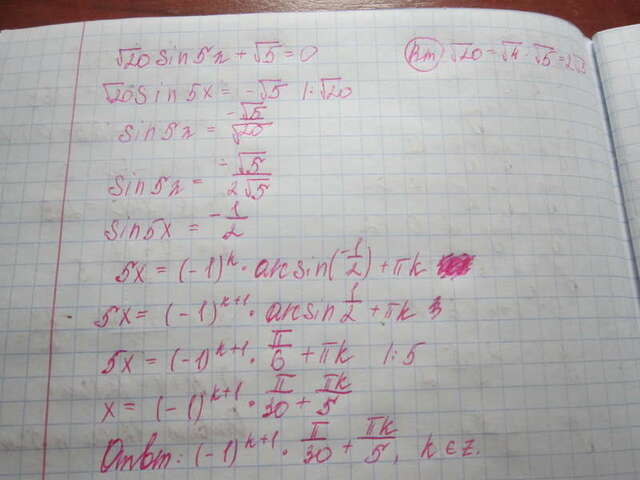 √20 sin 5x + √5 = 0
√20 = √4 · √5 = 2√5
√20 sin 5x = -√5 |: √20
sin 5x = -√5/√20
sin 5x = -√5/2√5
sin 5x = -1/2
5x = (-1)^k · arcsin(-1/2) + πk
5x = (-1)^{k+1} · arcsin 1/2 + πk
5x = (-1)^{k+1} · π/6 + πk |: 5
x = (-1)^{k+1} · π/30 + πk/5
Ответ: (-1)^{k+1} · π/30 + πk/5, k ∈ z.